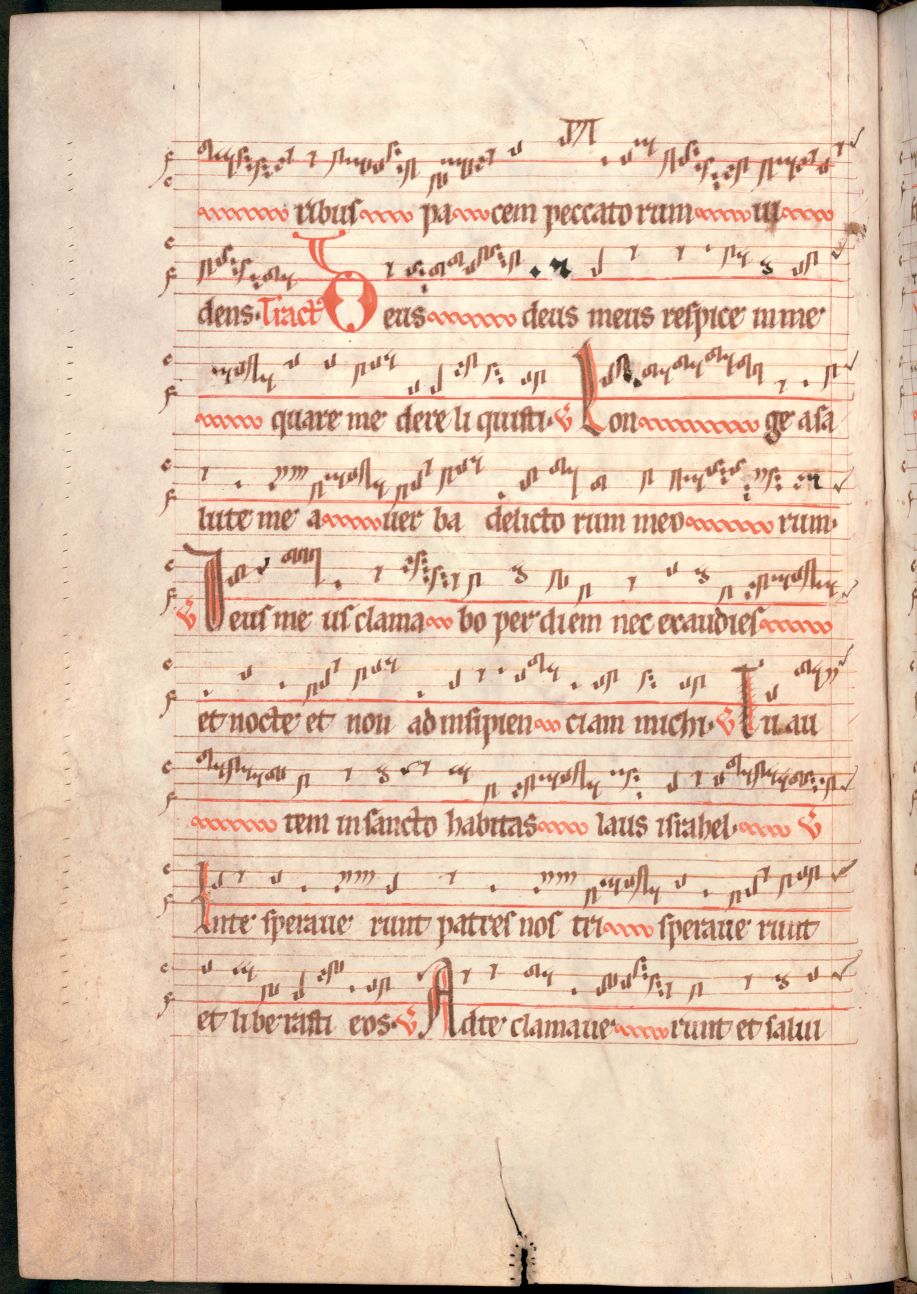 ribus pa cem peccato rum vi
dens. Tract' Deus deus meus respice in me
quare me dere li quisti. V Lon ge a sa
lute me a uer ba delicto rum meo rum.
V Deus me us clama bo per diem nec exaudies
et nocte et non ad insipien ciam michi. V Tu au
tem in sancto habitas laus israhel. V
In te speraue runt patres nos tri speraue runt
et li berasti eos. V Ad te clamaue runt et salui